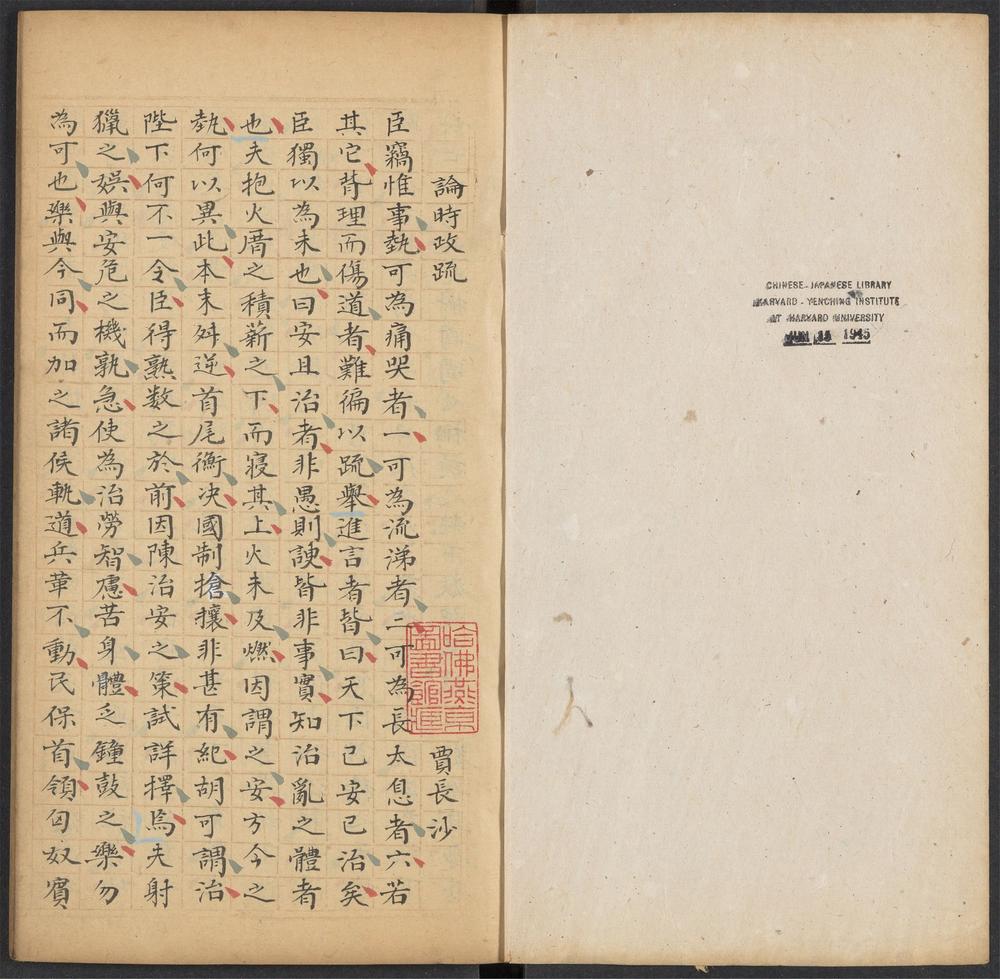 論時政疏 賈長沙
臣竊惟事埶可為痛哭者一可為流涕者二可為長太息者六若
其它背理而傷道者難徧以疏舉進言者皆曰天下已安已治矣
臣獨以為未也曰安且治者非愚則諛皆非事實知治亂之體者
也夫抱火厝之積薪之下而寝其上火未及燃因謂之安方今之
埶何以異此本末舛逆首尾衡决國制搶攘非甚有紀胡可謂治
陛下何不一令臣得熟数之於前因陳治安之策試詳擇焉夫射
獵之娛與安危之機孰急使為治勞智慮苦身體乏鐘鼓之樂勿
為可也樂與今同而加之諸侯軌道兵革不動民保首領匈奴賓
哈佛燕京
圖書館
CHINESE-JAPANESE LIBRARY
HARVARD-YENCHING INSTITUTE
AT HARVARD UNIVERSITY
JUN 15 1945